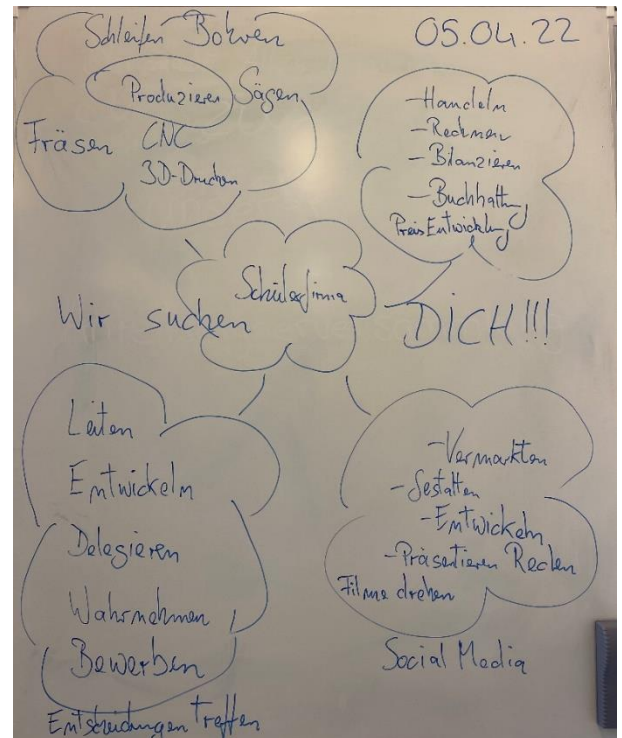 05.04.22
Schleifen Bohren
Produzieren Sägen
Fräsen CNC
3D-Drucken
-Handeln
-Rechnen
-Bilanzieren
-Buchhaltung
Preis Entwicklung
Schülerfirma
Wir suchen DICH!!!
Leiten
Entwickeln
Delegieren
Wahrnehmen
Bewerben
Entscheidungen treffen
-Vermarkten
-Gestalten
-Entwickeln
-Präsentieren Reden
Filme drehen
Social Media